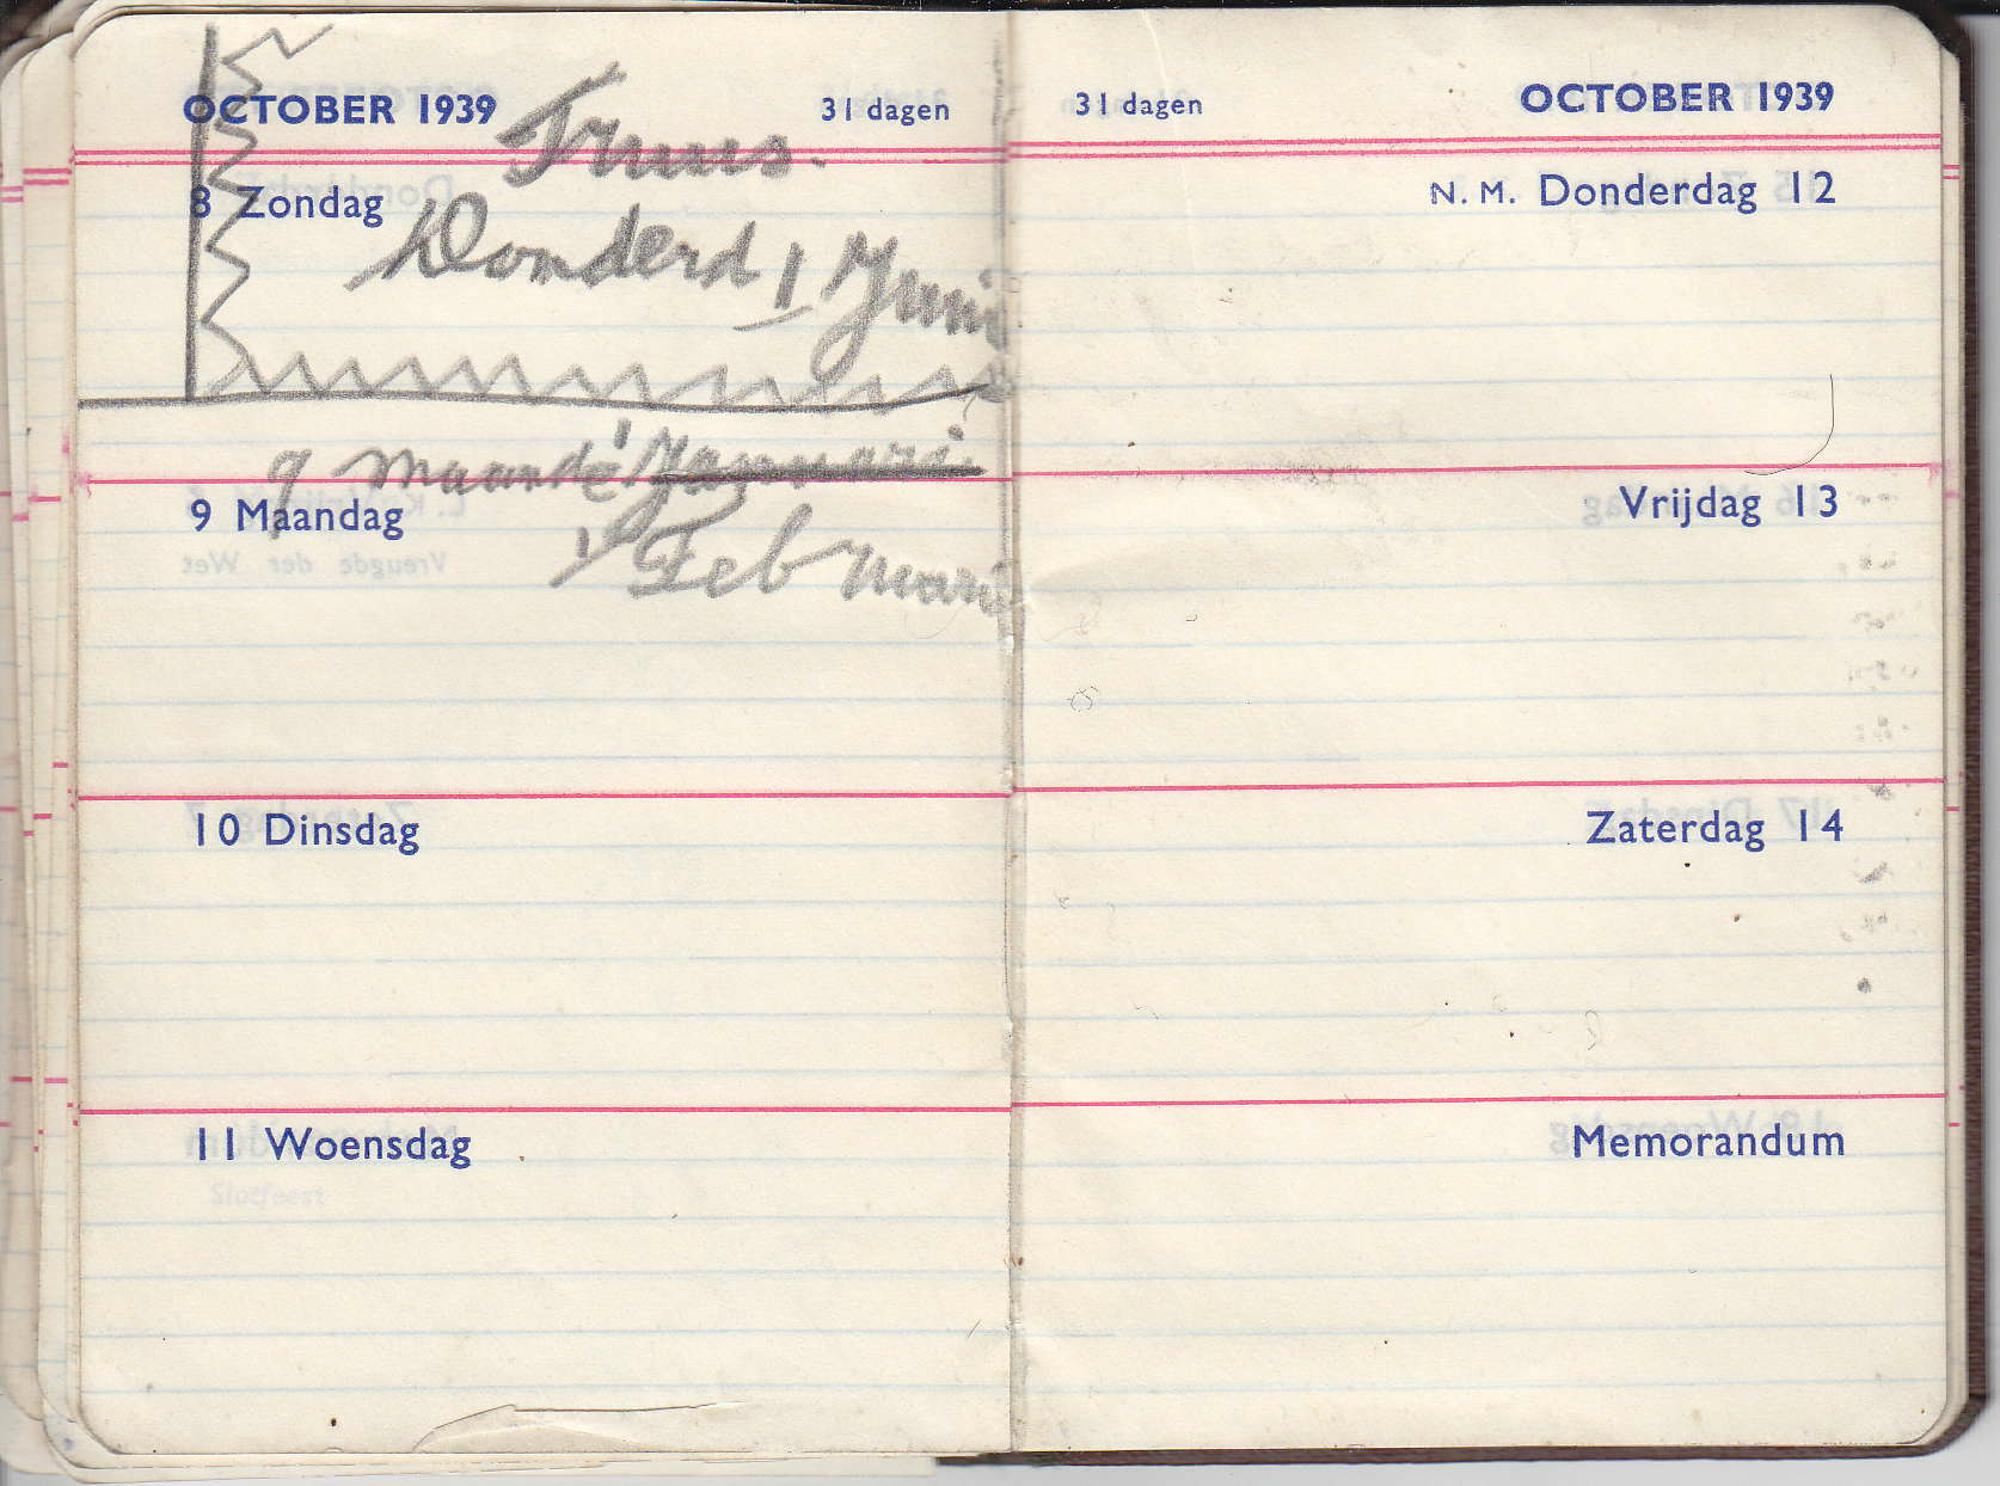 OCTOBER 1939 31 dagen
Truus.
8 Zondag
Donderd 1 Juni
9 maande 1 Januari
9 Maandag
1 Februari
10 Dinsdag
11 Woensdag
31 dagen OCTOBER 1939
N. M. Donderdag 12
Vrijdag 13
Zaterdag 14
Memorandum